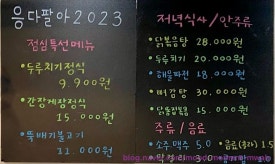 응다팔아2023
점심특선메뉴
두루치기정식
9.900원
간장게장정식
15.000원
뚝배기불고기
11.000원
저녁식사/안주류
닭볶음탕 28.000원
두루치기 20.000원
해물파전 18.000원
뼈감탕 30.000원
15.000원
주류/음료
소주.맥주 5.0